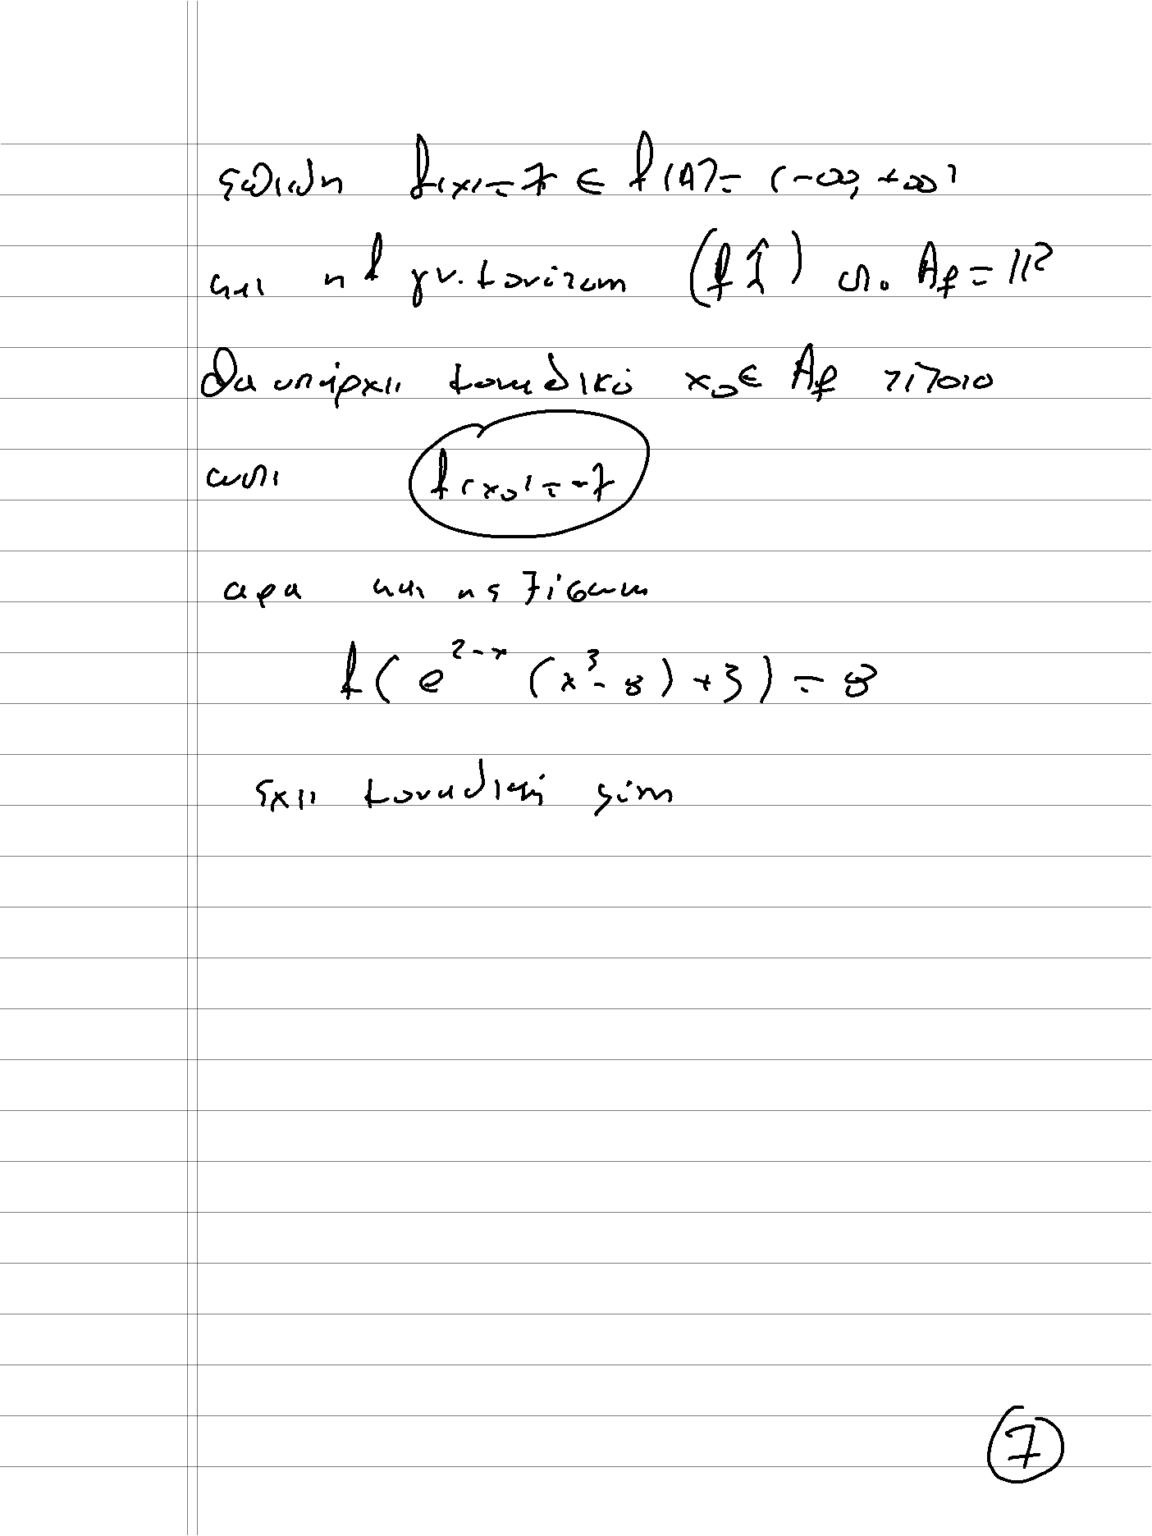 επειδή f(x)=-7 ∈ f(A)= (-∞, +∞)
και η f γν. μονότονη (f↑) στο A_f = ℝ
Θα υπάρχει μοναδικό x₀ ∈ A_f τέτοιο
ώστε f(x₀) = -7
αρα και η εξίσωση
f( e^{2-x} (x³-8) +3) = 8
έχει μοναδική λύση
7